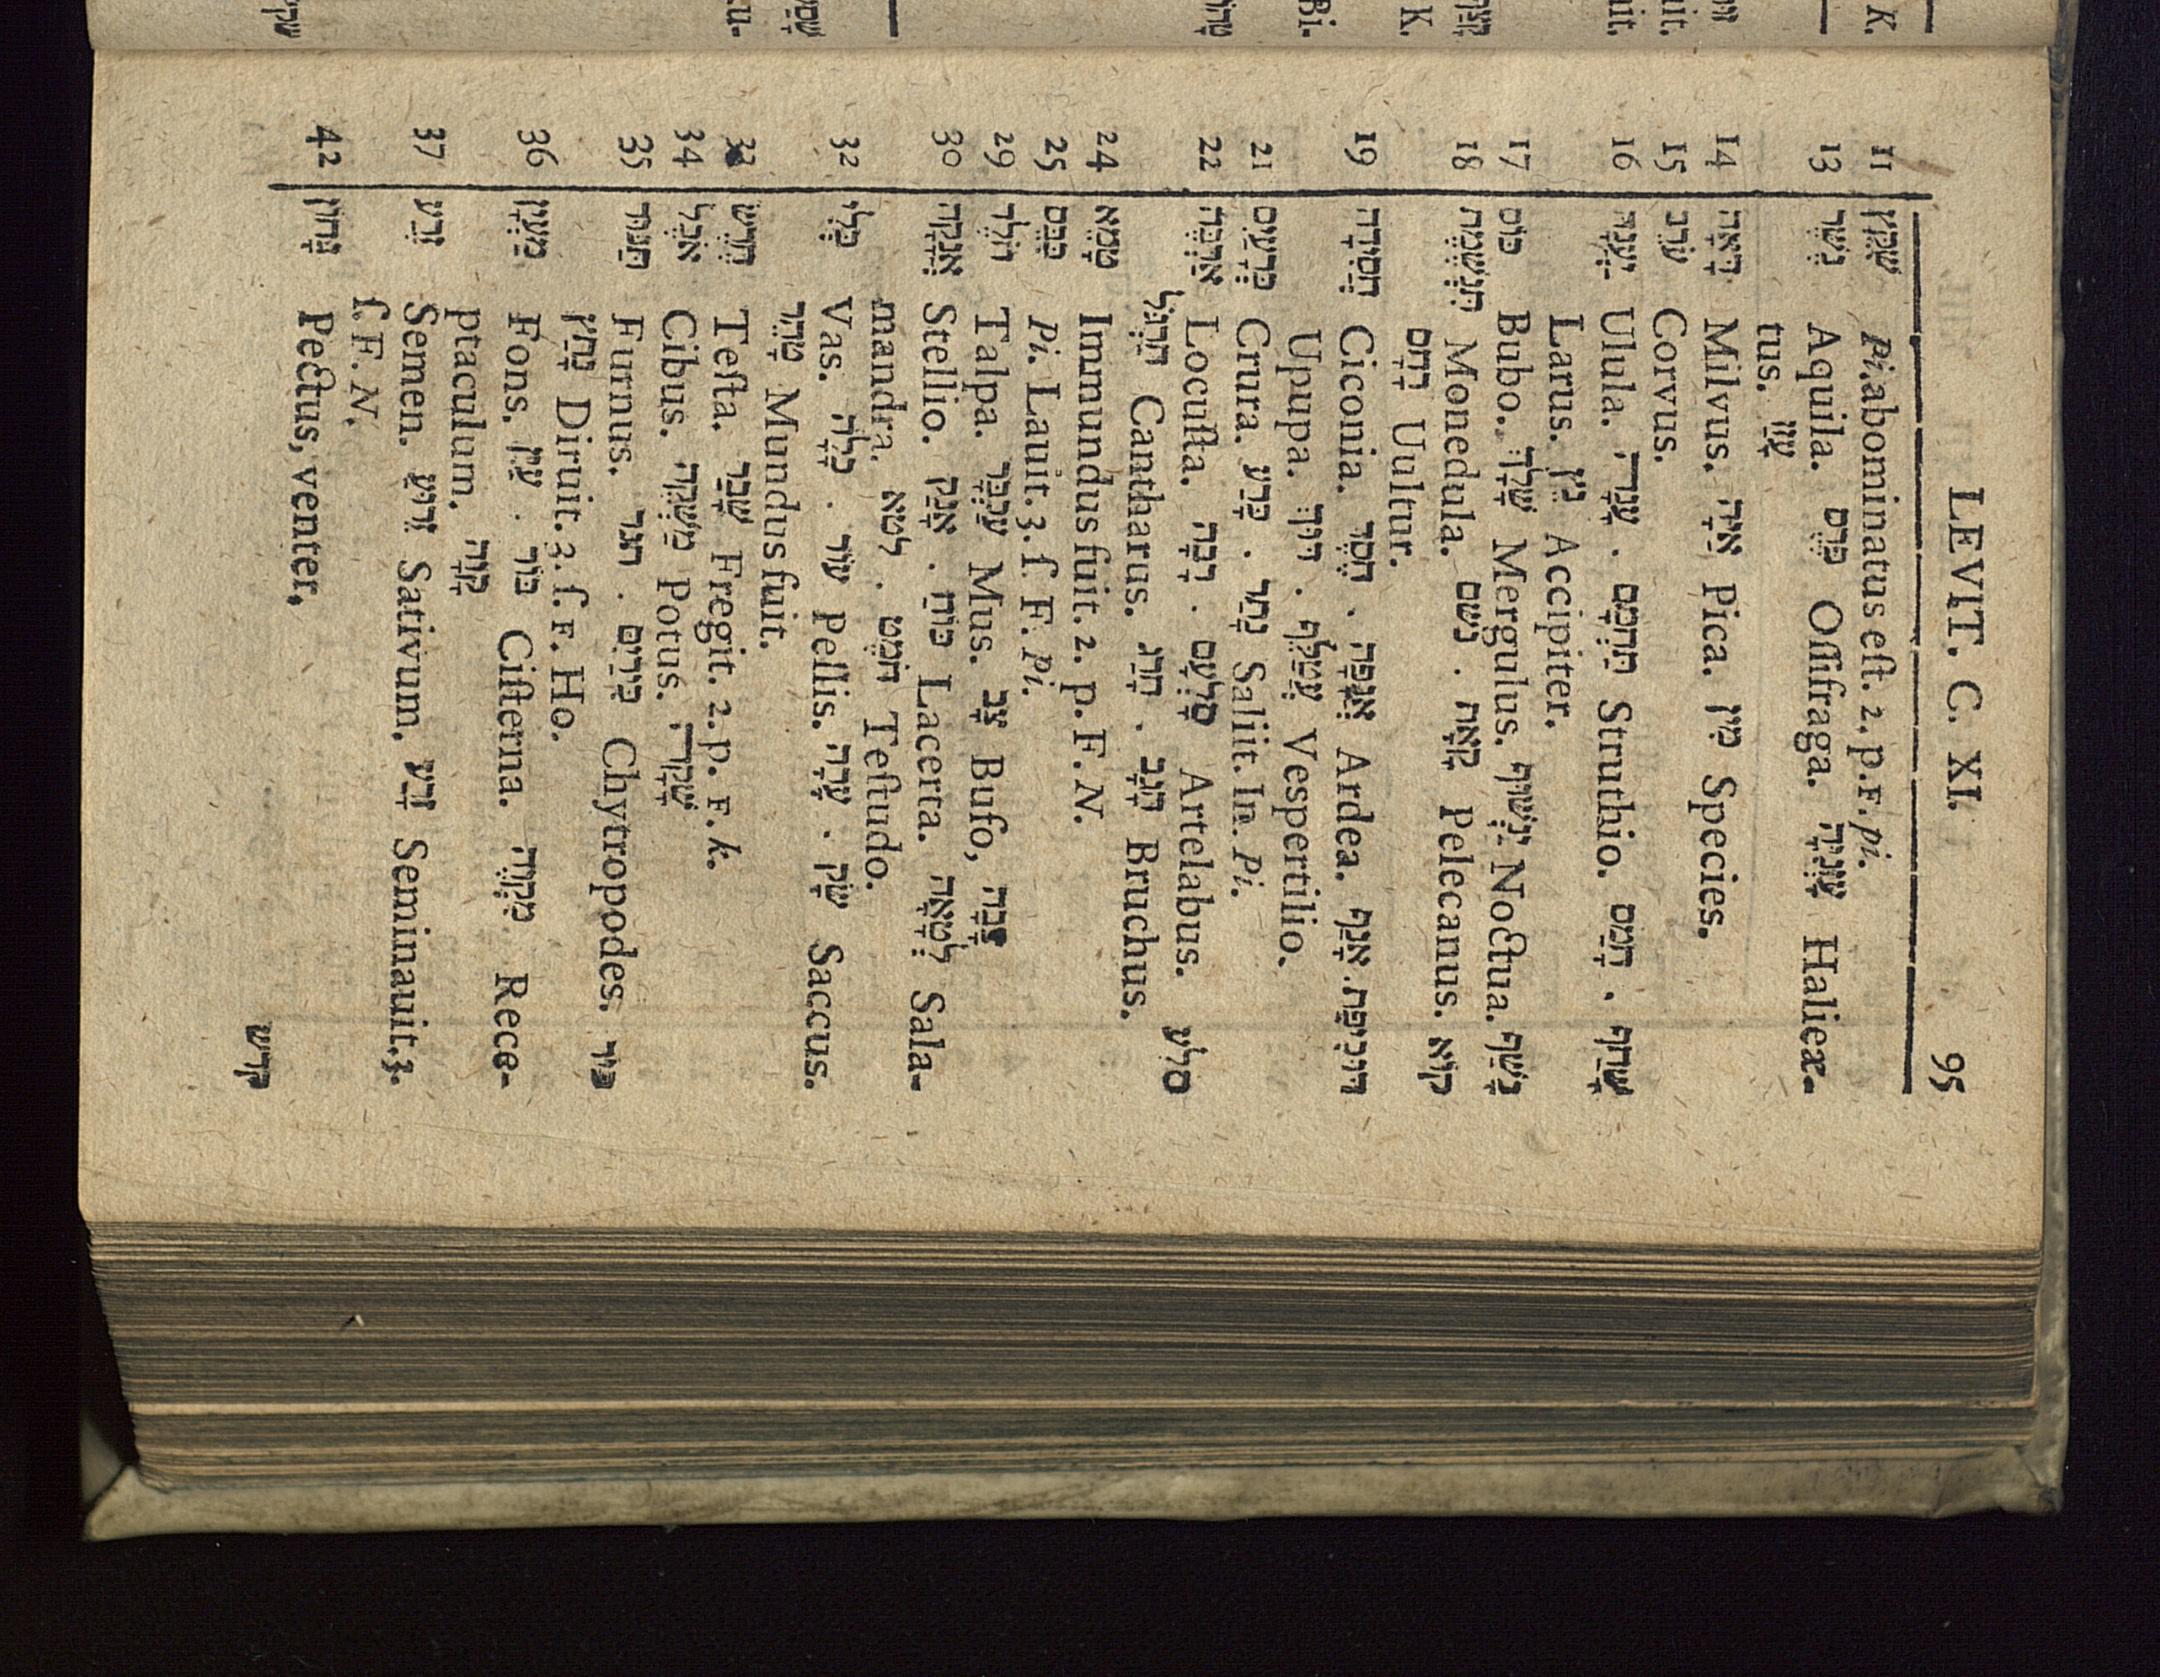 LEVIT. C. XI. 95
11 שִׁקֵּץ Pi. abominatus eſt. 2. p. F. pi.
13 נֶשֶׁר Aquila. פֶּרֶס Oſſifraga. עָזְנִיָּה Haliæ-
tus. עֹז
14 דָּאָה Milvus. אַיָּה Pica. מִין Species.
15 עֹרֵב Corvus.
16 יַעֲנָה Ulula. עֲנָה . תַּחְמָס Struthio. חָמַס . שָׁחַף
Larus. נֵץ Accipiter.
17 כּוֹס Bubo. שָׁלָךְ Mergulus. יַנְשׁוּף Noctua. נֶשֶׁף
18 תִּנְשֶׁמֶת Monedula. נשם . קָאָת Pelecanus. קוֹא
רָחָם Uultur.
19 חֲסִידָה Ciconia. חֶסֶד . אֲנָפָה Ardea. אָנַף . דּוּכִיפַת
Upupa. דּוּךְ . עֲטַלֵּף Vespertilio.
21 כְּרָעַיִם Crura. כָּרַע . נָתַר Saliit. In. Pi.
22 אַרְבֶּה Locuſta. רָבָה . סָלְעָם Artelabus. סלע
חַרְגֹּל Cantharus. חָרַג . חָגָב Bruchus.
24 טָמֵא Immundus fuit. 2. p. F. N.
25 כִּבֶּס Pi. Lauit. 3. ſ. F. Pi.
29 חֹלֶד Talpa. עַכְבָּר Mus. צָב Bufo, צָבָה
30 אֲנָקָה Stellio. אָנַק . כּוֹחַ Lacerta. לְטָאָה Sala-
mandra. לטא . חֹמֶט Teſtudo.
32 כְּלִי Vas. כָּלָה . עוֹר Pellis. עָרָה . שַׂק Saccus.
טָהֵר Mundus fuit.
33 חֶרֶשׂ Teſta. שָׁבַר Fregit. 2. p. F. k.
34 אֹכֶל Cibus. מַשְׁקֶה Potus. שָׁקָה
35 תַּנּוּר Furnus. תנר . כִּירַיִם Chytropodes. כּוּר
נָתַץ Diruit. 3. ſ. F. Ho.
36 מַעְיָן Fons. עַיִן . בּוֹר Ciſterna. מִקְוֶה Rece-
ptaculum. קָוָה
37 זֶרַע Semen. זֵרוּעַ Sativum. זָרַע Seminauit. 3.
ſ. F. N.
42 גָּחוֹן Pectus, venter.
קדש